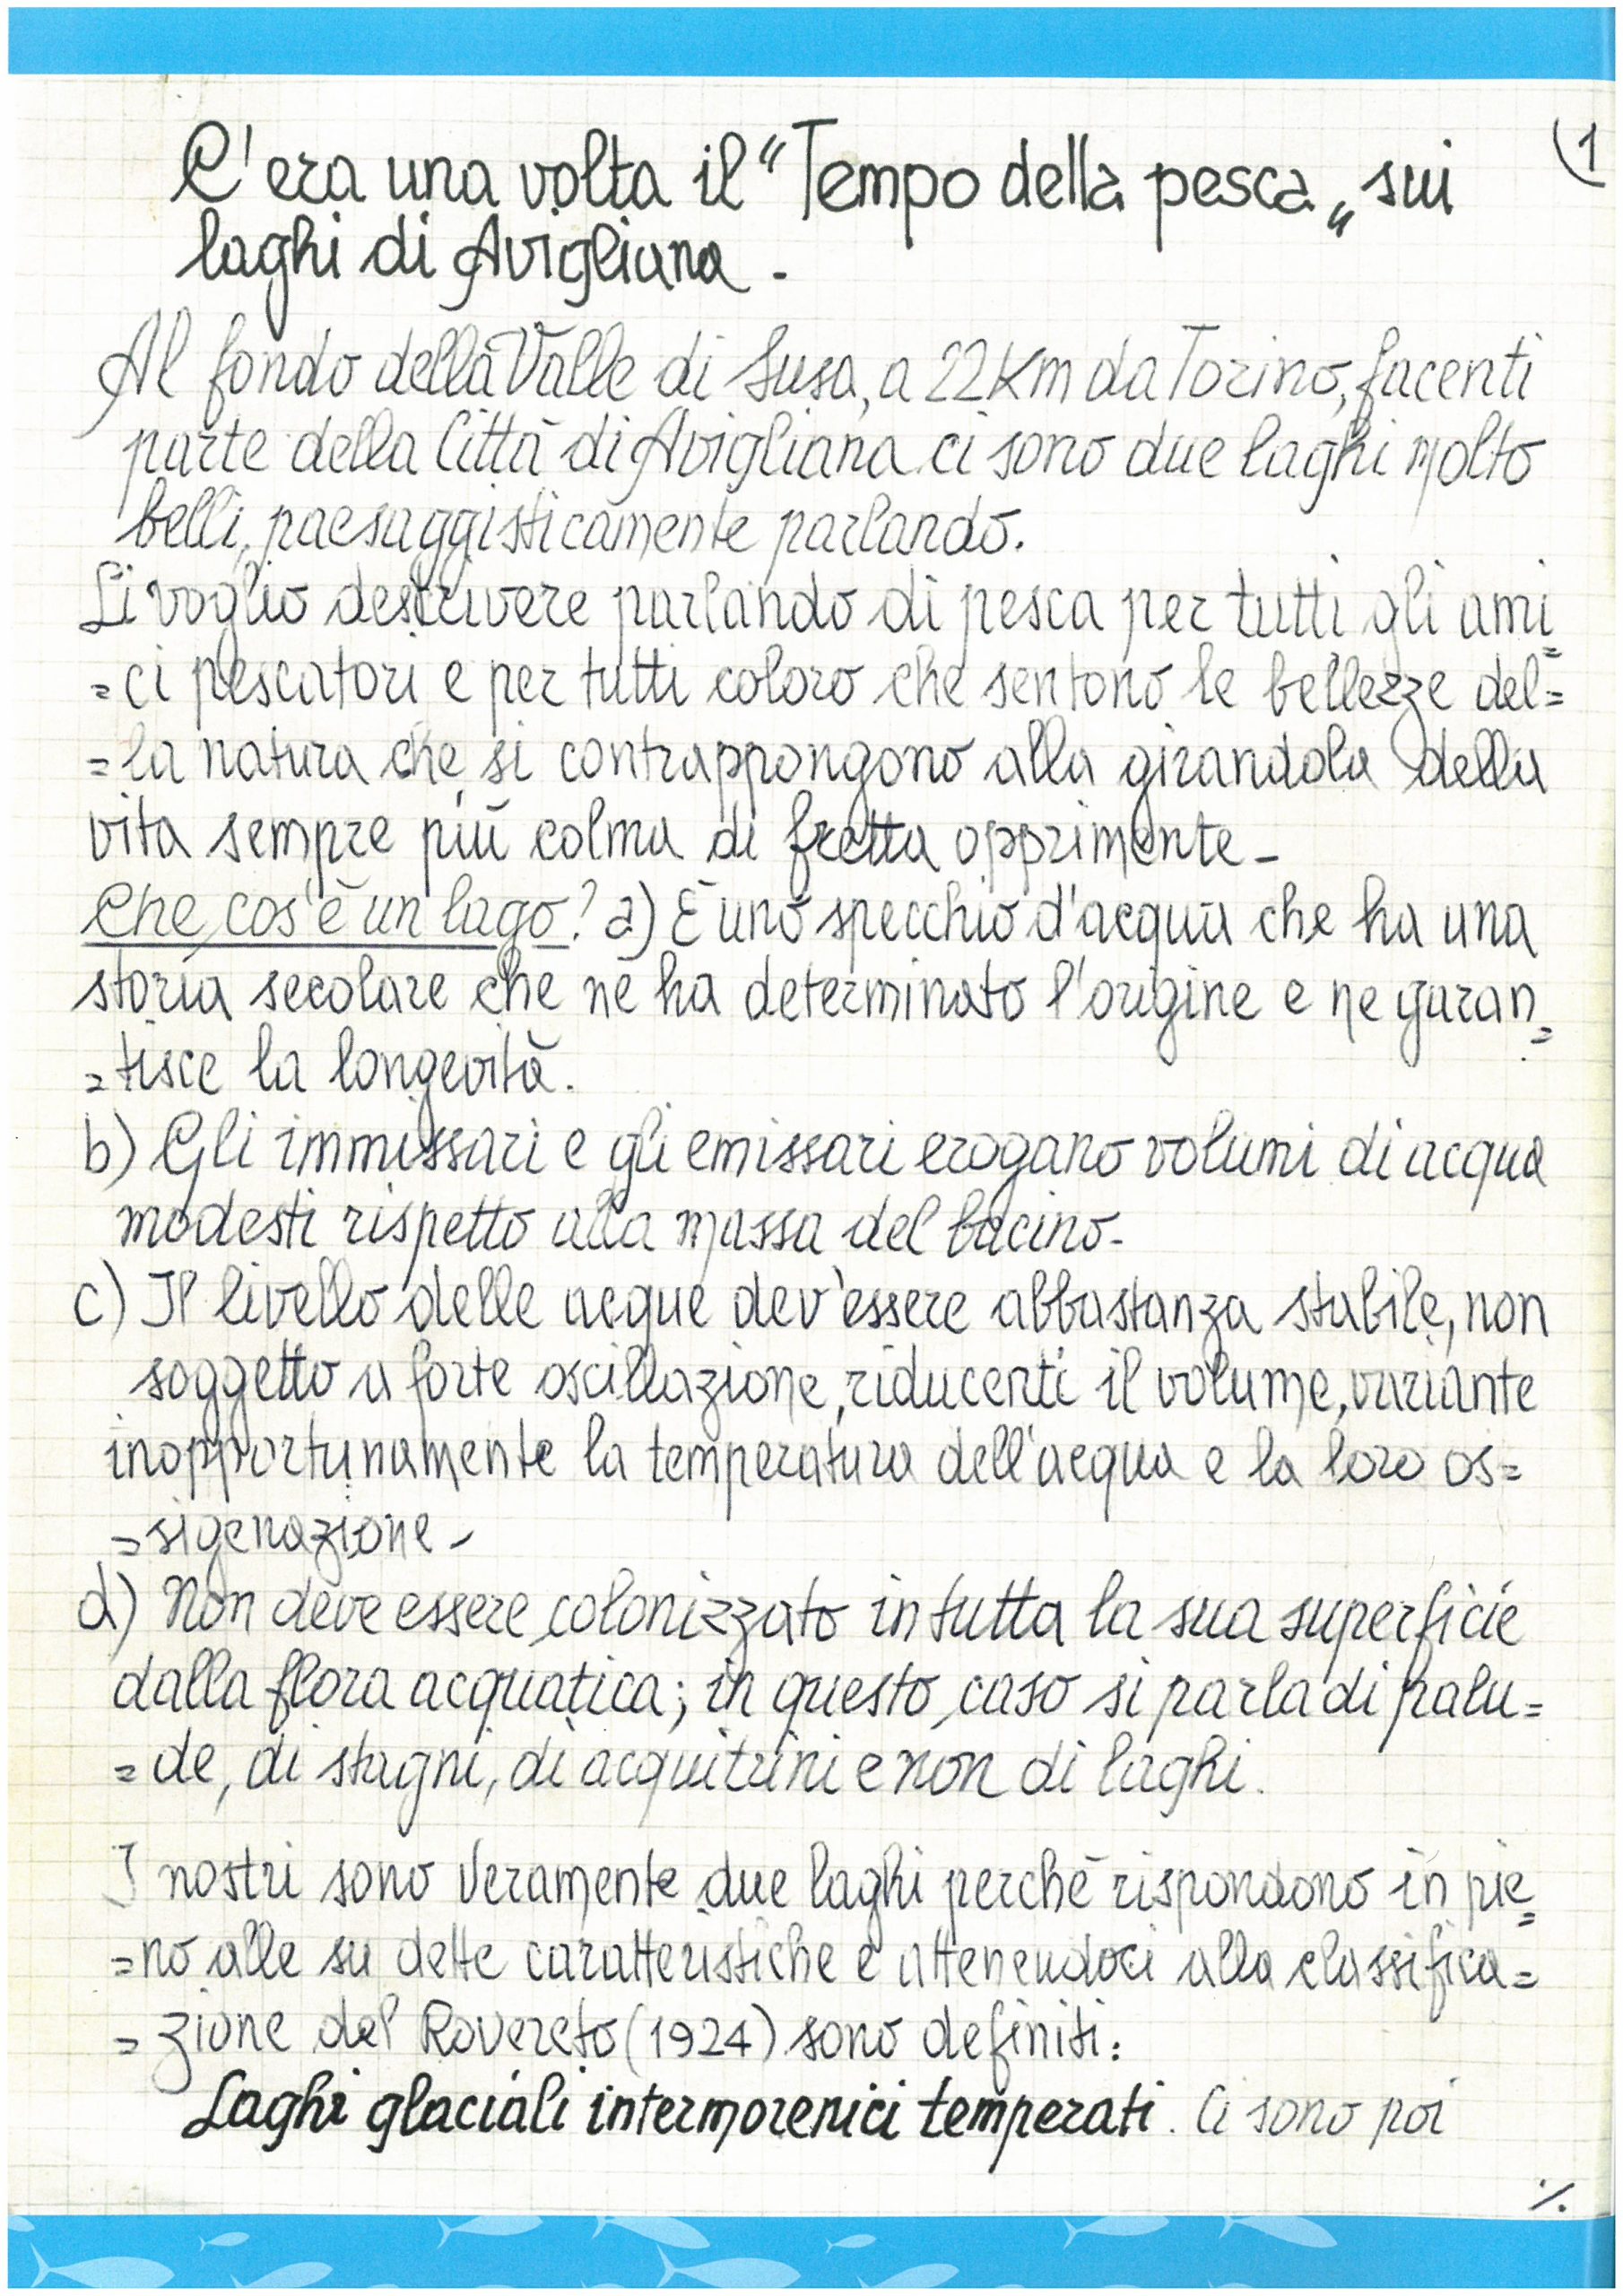 1
C'era una volta il "Tempo della pesca„ sui
laghi di Avigliana -
Al fondo della Valle di Susa, a 22 Km da Torino, facenti
parte della Città di Avigliana ci sono due laghi molto
belli, paesaggisticamente parlando.
Li voglio descrivere parlando di pesca per tutti gli ami=
=ci pescatori e per tutti coloro che sentono le bellezze del=
=la natura che si contrappongono alla girandola della
vita sempre più colma di fretta opprimente -
Che cos'è un lago? a) È uno specchio d'acqua che ha una
storia secolare che ne ha determinato l'origine e ne garan=
=tisce la longevità.
b) Gli immissari e gli emissari erogano volumi di acqua
modesti rispetto alla massa del bacino -
c) Il livello delle acque dev'essere abbastanza stabile, non
soggetto a forte oscillazione, riducenti il volume, variante
inopportunamente la temperatura dell'acqua e la loro os=
=sigenazione -
d) Non deve essere colonizzato in tutta la sua superficie
dalla flora acquatica; in questo caso si parla di palu=
=de, di stagni, di acquitrini e non di laghi.
I nostri sono veramente due laghi perché rispondono in pie=
=no alle su dette caratteristiche e attenendoci alla classifica=
=zione del Rovereto (1924) sono definiti:
Laghi glaciali intermorenici temperati. Ci sono poi
%